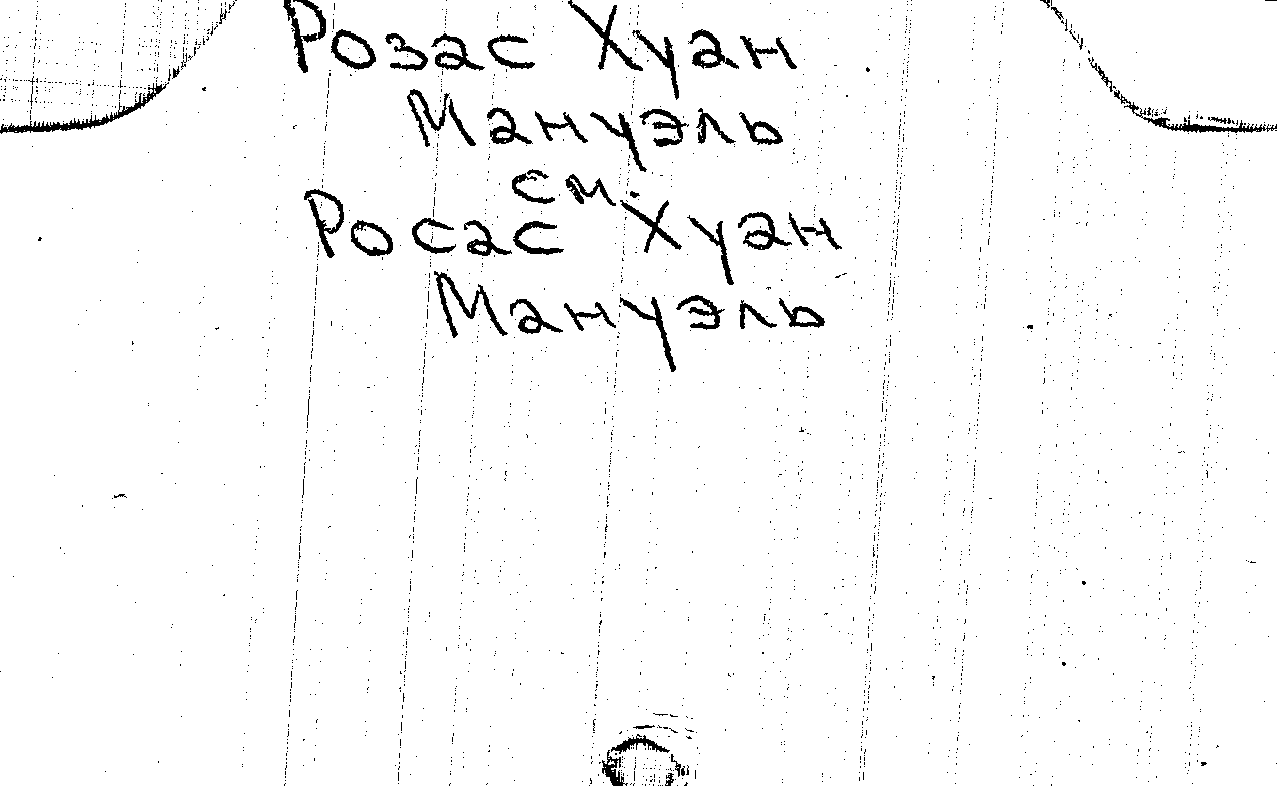 Розас Хуан
Мануэль
см.
Росас Хуан
Мануэль